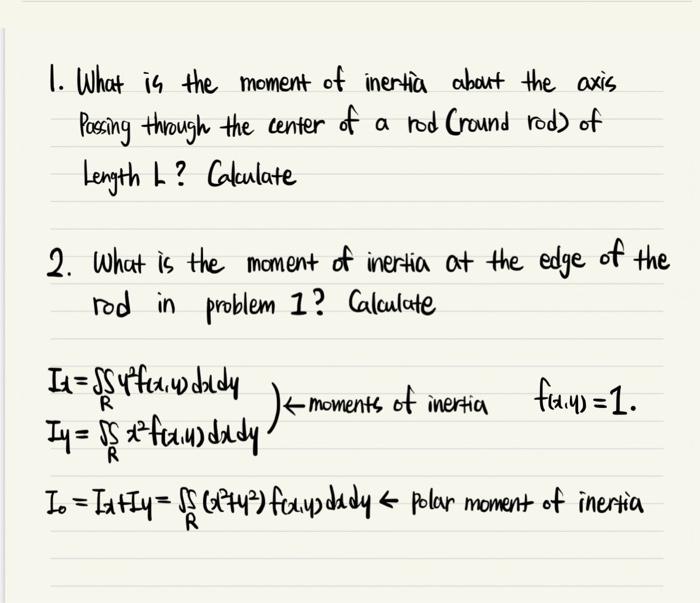 1. What is the moment of inertia about the axis
Passing through the center of a rod (round rod) of
Length L? Calculate
2. What is the moment of inertia at the edge of the
rod in problem 1? Calculate
Ix = ∬R y²f(x,y) dxdy
) ← moments of inertia f(x,y) = 1.
Iy = ∬R x²f(x,y) dxdy
I₀ = Ix+Iy = ∬R (x²+y²) f(x,y) dxdy ← Polar moment of inertia